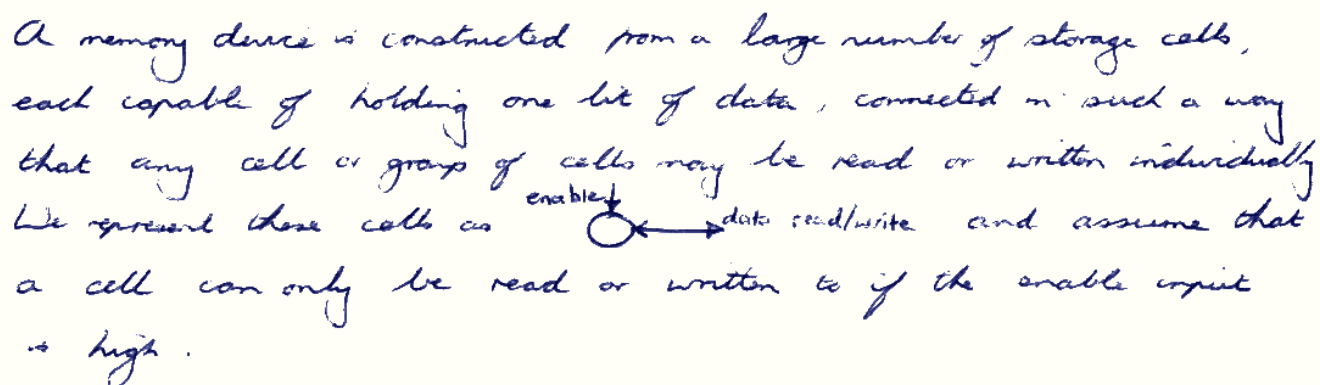 A memory device is constructed from a large number of storage cells,
each capable of holding one bit of data, connected in such a way
that any cell or group of cells may be read or written individually
We represent these cells as enable data read/write and assume that
a cell can only be read or written to if the enable input
is high.